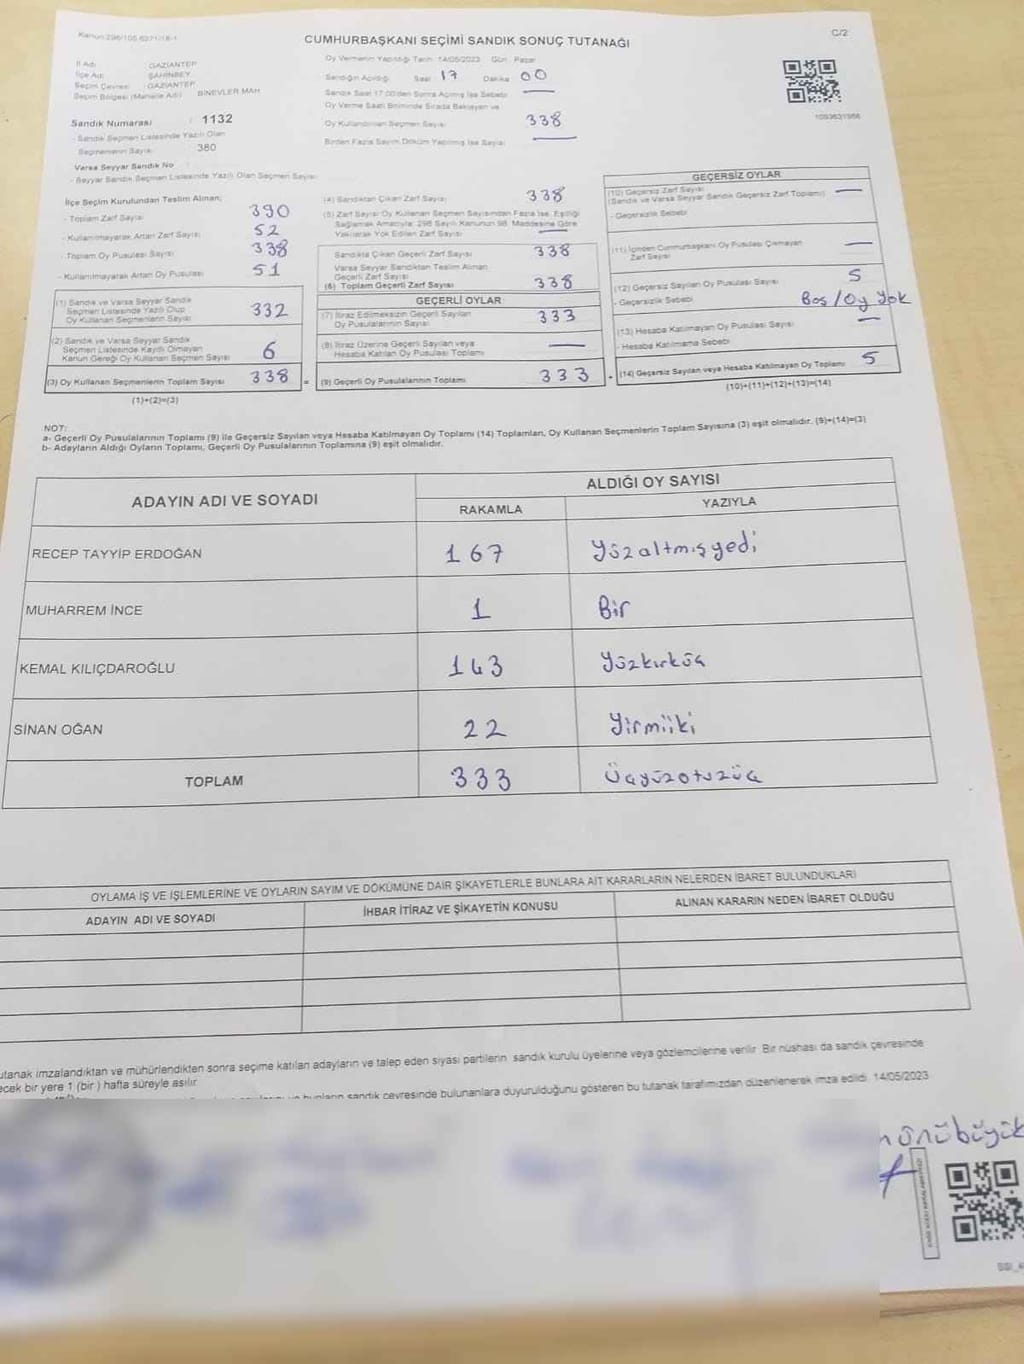 Kanun:298/105 6271/18-1
C/2
CUMHURBAŞKANI SEÇİMİ SANDIK SONUÇ TUTANAĞI
İl Adı : GAZİANTEP
İlçe Adı : ŞAHİNBEY
Seçim Çevresi : GAZİANTEP
Seçim Bölgesi (Mahalle Adı) : BİNEVLER MAH
Sandık Numarası : 1132
- Sandık Seçmen Listesinde Yazılı Olan
Seçmenlerin Sayısı : 380
Varsa Seyyar Sandık No
- Seyyar Sandık Seçmen Listesinde Yazılı Olan Seçmen Sayısı:
Oy Vermenin Yapıldığı Tarih: 14/05/2023 Gün: Pazar
Sandığın Açıldığı Saat 17 Dakika 00
Sandık Saat 17:00'den Sonra Açılmış İse Sebebi
Oy Verme Saati Bitiminde Sırada Bekleyen ve
Oy Kullandırılan Seçmen Sayısı 338
Birden Fazla Sayım Döküm Yapılmış İse Sayısı
İlçe Seçim Kurulundan Teslim Alınan;
- Toplam Zarf Sayısı 390
- Kullanılmayarak Artan Zarf Sayısı 52
- Toplam Oy Pusulası Sayısı 338
- Kullanılmayarak Artan Oy Pusulası 51
(1) Sandık ve Varsa Seyyar Sandık
Seçmen Listesinde Yazılı Olup
Oy Kullanan Seçmenlerin Sayısı 332
(2) Sandık ve Varsa Seyyar Sandık
Seçmen Listesinde Kayıtlı Olmayan
Kanun Gereği Oy Kullanan Seçmen Sayısı 6
(3) Oy Kullanan Seçmenlerin Toplam Sayısı 338 =
(1)+(2)=(3)
(4) Sandıktan Çıkan Zarf Sayısı 338
(5) Zarf Sayısı Oy Kullanan Seçmen Sayısından Fazla İse, Eşitliği
Sağlamak Amacıyla; 298 Sayılı Kanunun 98. Maddesine Göre
Yakılarak Yok Edilen Zarf Sayısı
Sandıkta Çıkan Geçerli Zarf Sayısı 338
Varsa Seyyar Sandıktan Teslim Alınan
Geçerli Zarf Sayısı
(6) Toplam Geçerli Zarf Sayısı 338
GEÇERLİ OYLAR
(7) İtiraz Edilmeksizin Geçerli Sayılan
Oy Pusulalarının Sayısı 333
(8) İtiraz Üzerine Geçerli Sayılan veya
Hesaba Katılan Oy Pusulası Toplamı
(9) Geçerli Oy Pusulalarının Toplamı 333 +
1093631968
GEÇERSİZ OYLAR
(10) Geçersiz Zarf Sayısı
(Sandık ve Varsa Seyyar Sandık Geçersiz Zarf Toplamı)
- Geçersizlik Sebebi
(11) İçinden Cumhurbaşkanı Oy Pusulası Çıkmayan
Zarf Sayısı
(12) Geçersiz Sayılan Oy Pusulası Sayısı 5
- Geçersizlik Sebebi Boş/Oy Yok
(13) Hesaba Katılmayan Oy Pusulası Sayısı
- Hesaba Katılmama Sebebi
(14) Geçersiz Sayılan veya Hesaba Katılmayan Oy Toplamı 5
(10)+(11)+(12)+(13)=(14)
NOT:
a- Geçerli Oy Pusulalarının Toplamı (9) ile Geçersiz Sayılan veya Hesaba Katılmayan Oy Toplamı (14) Toplamları, Oy Kullanan Seçmenlerin Toplam Sayısına (3) eşit olmalıdır. (9)+(14)=(3)
b- Adayların Aldığı Oyların Toplamı, Geçerli Oy Pusulalarının Toplamına (9) eşit olmalıdır.
ADAYIN ADI VE SOYADI
ALDIĞI OY SAYISI
RAKAMLA YAZIYLA
RECEP TAYYİP ERDOĞAN 167 Yüzaltmışyedi
MUHARREM İNCE 1 Bir
KEMAL KILIÇDAROĞLU 143 Yüzkırküç
SİNAN OĞAN 22 Yirmiiki
TOPLAM 333 Üçyüzotuzüç
OYLAMA İŞ VE İŞLEMLERİNE VE OYLARIN SAYIM VE DÖKÜMÜNE DAİR ŞİKAYETLERLE BUNLARA AİT KARARLARIN NELERDEN İBARET BULUNDUKLARI
ADAYIN ADI VE SOYADI İHBAR İTİRAZ VE ŞİKAYETİN KONUSU ALINAN KARARIN NEDEN İBARET OLDUĞU
utanak imzalandıktan ve mühürlendikten sonra seçime katılan adayların ve talep eden siyasi partilerin sandık kurulu üyelerine veya gözlemcilerine verilir. Bir nüshası da sandık çevresinde
ecek bir yere 1 (bir) hafta süreyle asılır.
bunların sandık çevresinde bulunanlara duyurulduğunu gösteren bu tutanak tarafımızdan düzenlenerek imza edildi. 14/05/2023
nönübüyük